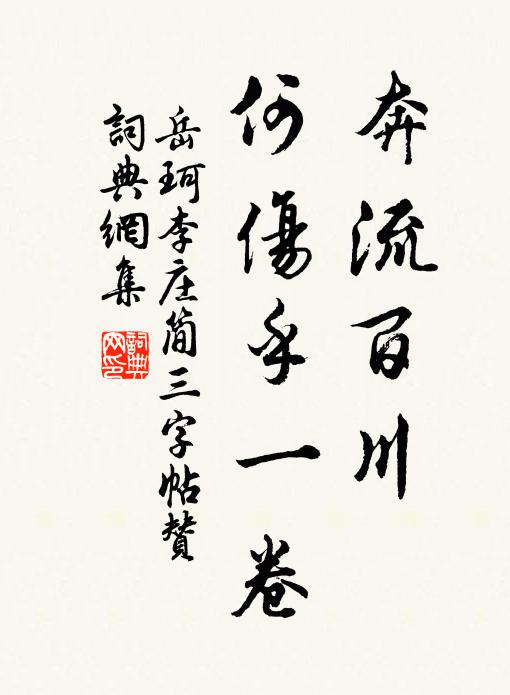 奔流百川
何傷乎一卷
岳珂李庄简三字帖賛
詞典網集
詞典網印